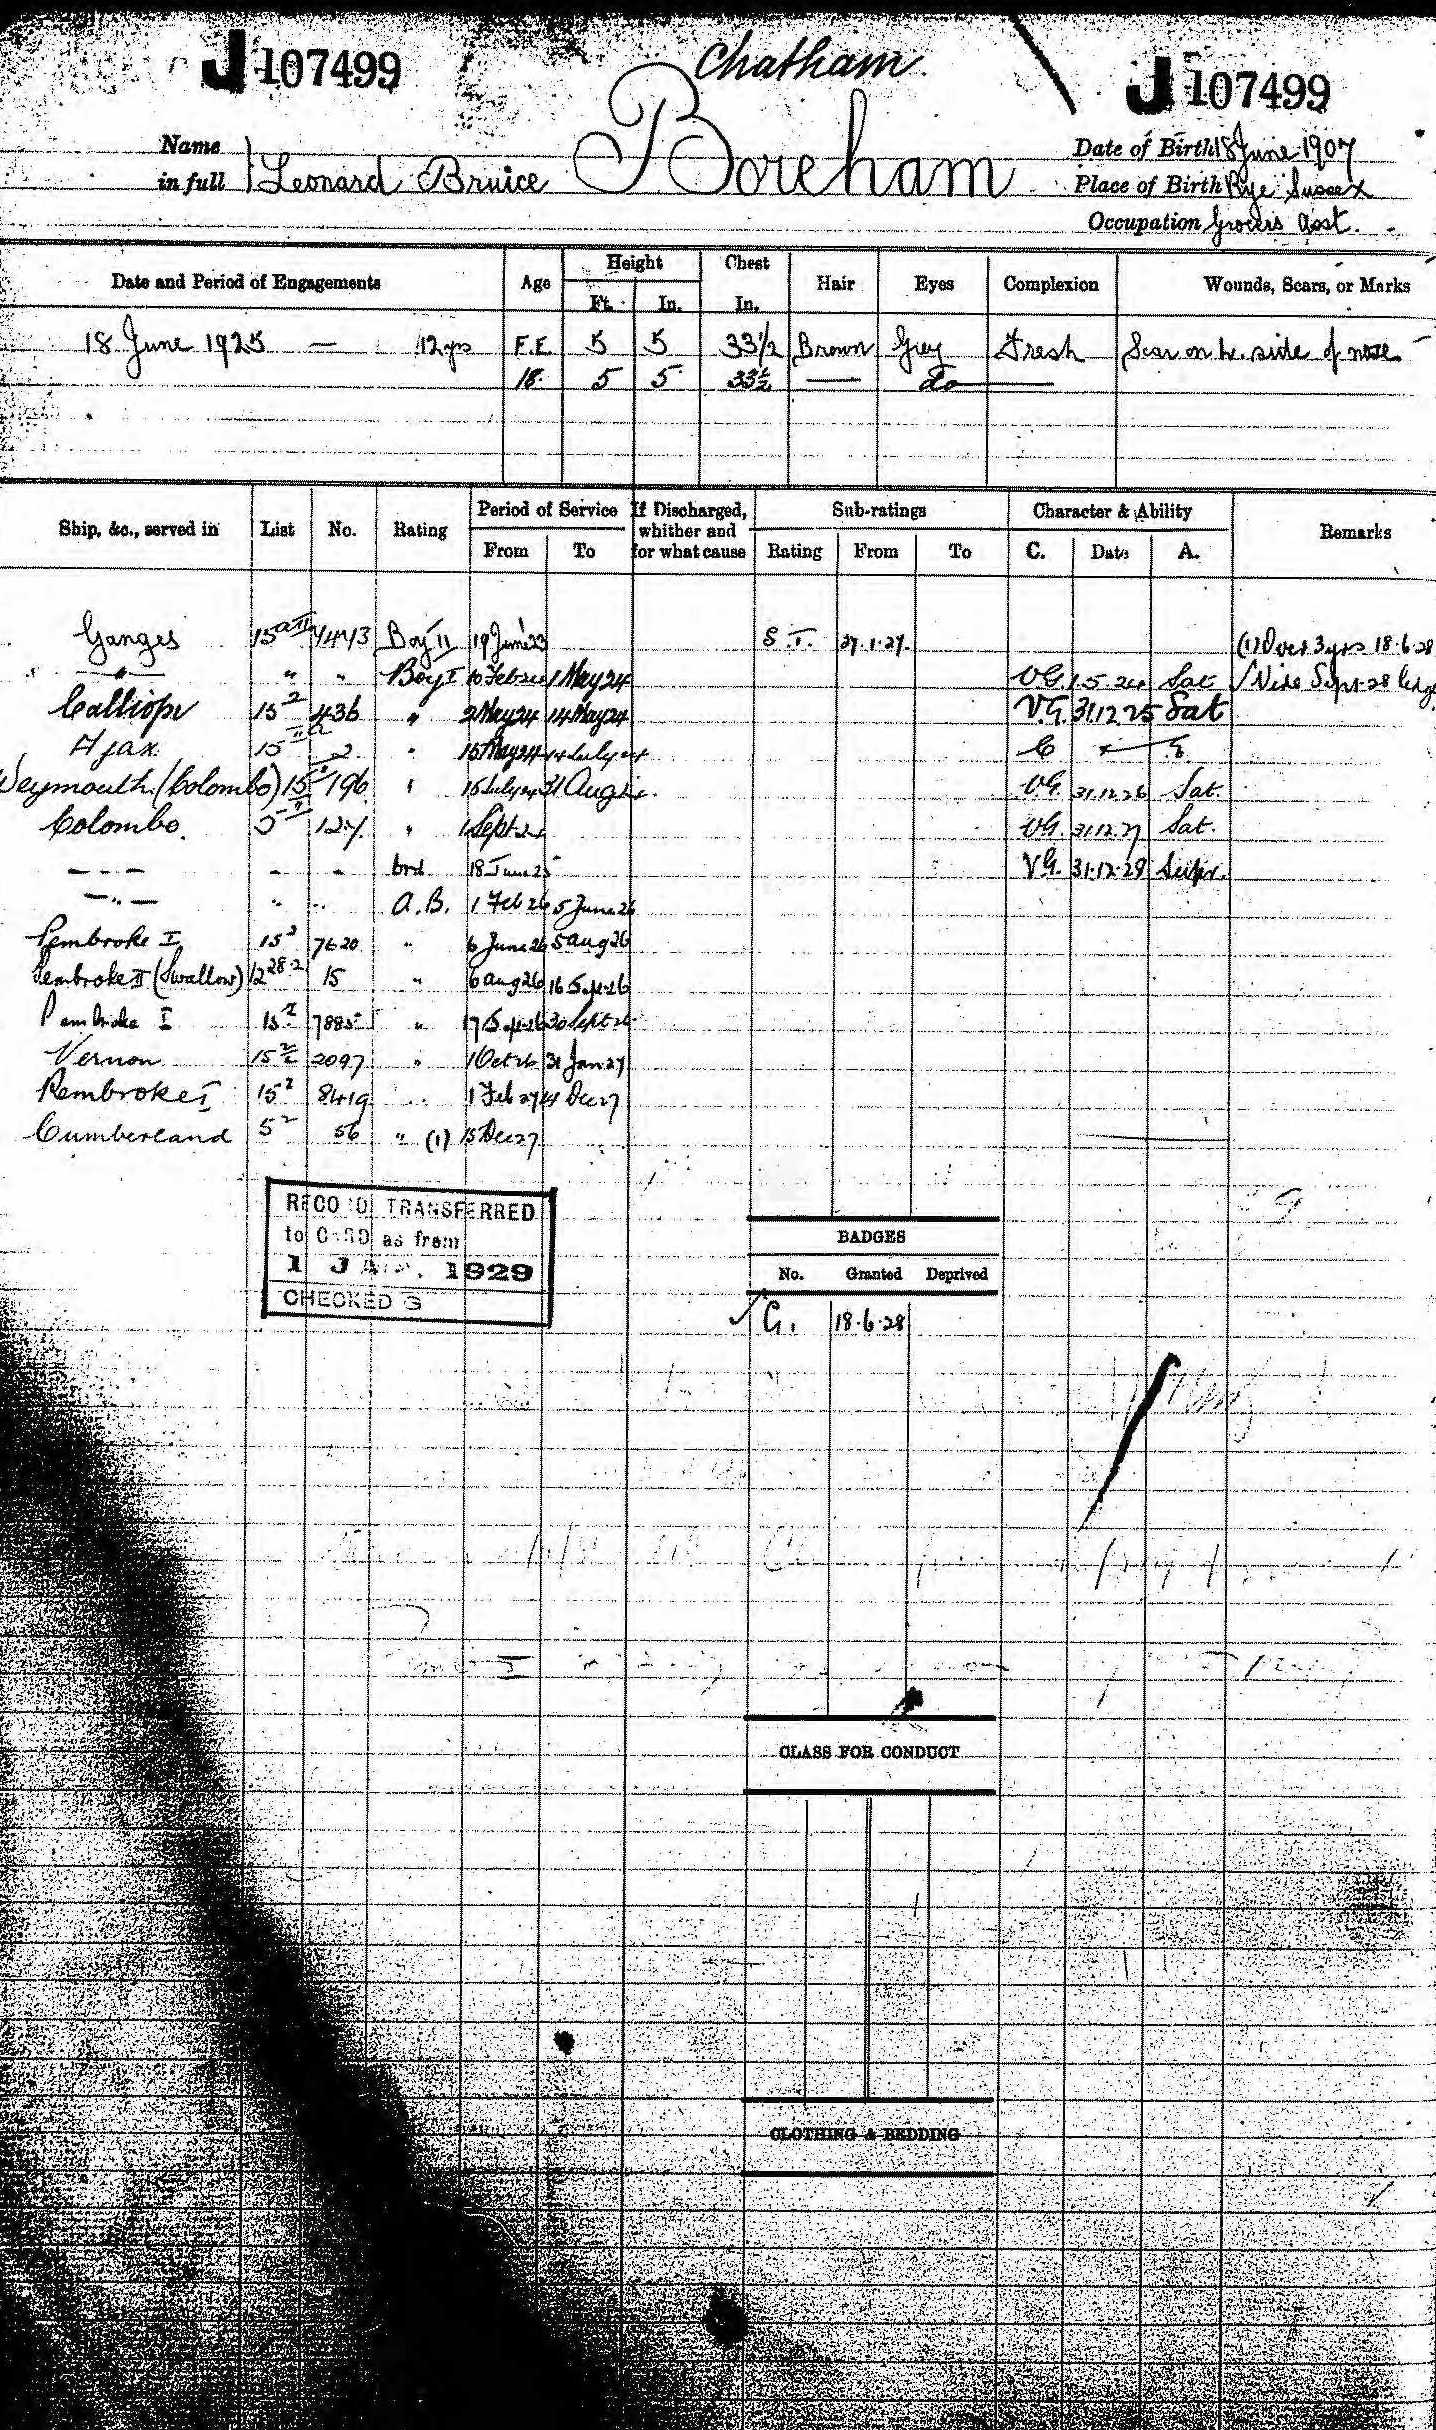 J 107499
Chatham
J 107499
Name in full
Leonard Bruice Boreham
Date of Birth 18 June 1907
Place of Birth Rye Sussex
Occupation Grocers Asst.
Date and Period of Engagements Age Height Ft. In. Chest In. Hair Eyes Complexion Wounds, Scars, or Marks
18 June 1925 — 12 yrs F.E. 5 5 33 1/2 Brown Grey Fresh Scar on side of nose
18. 5 5 33 1/2 — do —
Ship, &c., served in List No. Rating Period of Service From To If Discharged, whither and for what cause Sub-ratings Rating From To Character & Ability C. Date A. Remarks
Ganges 15 Boy II 19 June 23 S.T. 27.1.27. (1) Over 3 yrs 18.6.28
" " " Boy I 10 Feb 24 1 May 24 VG 1.5.24 Sat. Vide Sept. 28
Calliope 15 2 436 " 2 May 24 14 May 24 V.G. 31.12.25 Sat
Ajax. 15 2 " 15 May 24 14 July 24
Weymouth (Colombo) 15 196 " 15 July 24 31 Aug VG. 31.12.26 Sat.
Colombo. 5 127 " 1 Sept 24 VG 31.12.27 Sat.
— " — " " Ord 18 June 25 VG. 31.12.28 Supr.
— " — " " A.B. 1 Feb 26 5 June 26
Pembroke I 15 2 7620 " 6 June 26 5 Aug 26
Pembroke II (Swallow) 12 28.2 15 " 6 Aug 26 16 Sept. 26
Pembroke I 15 2 7885 " 17 Sept. 26 30 Sept 26
Vernon 15 2097 " 1 Oct 26 31 Jan 27
Pembroke I 15 2 8419 " 1 Feb 27 14 Dec 27
Cumberland 5 2 56 " (1) 15 Dec 27
RECORD TRANSFERRED
to CARD as from
1 JAN. 1929
CHECKED G
BADGES
No. Granted Deprived
G. 18.6.28
CLASS FOR CONDUCT
CLOTHING & BEDDING